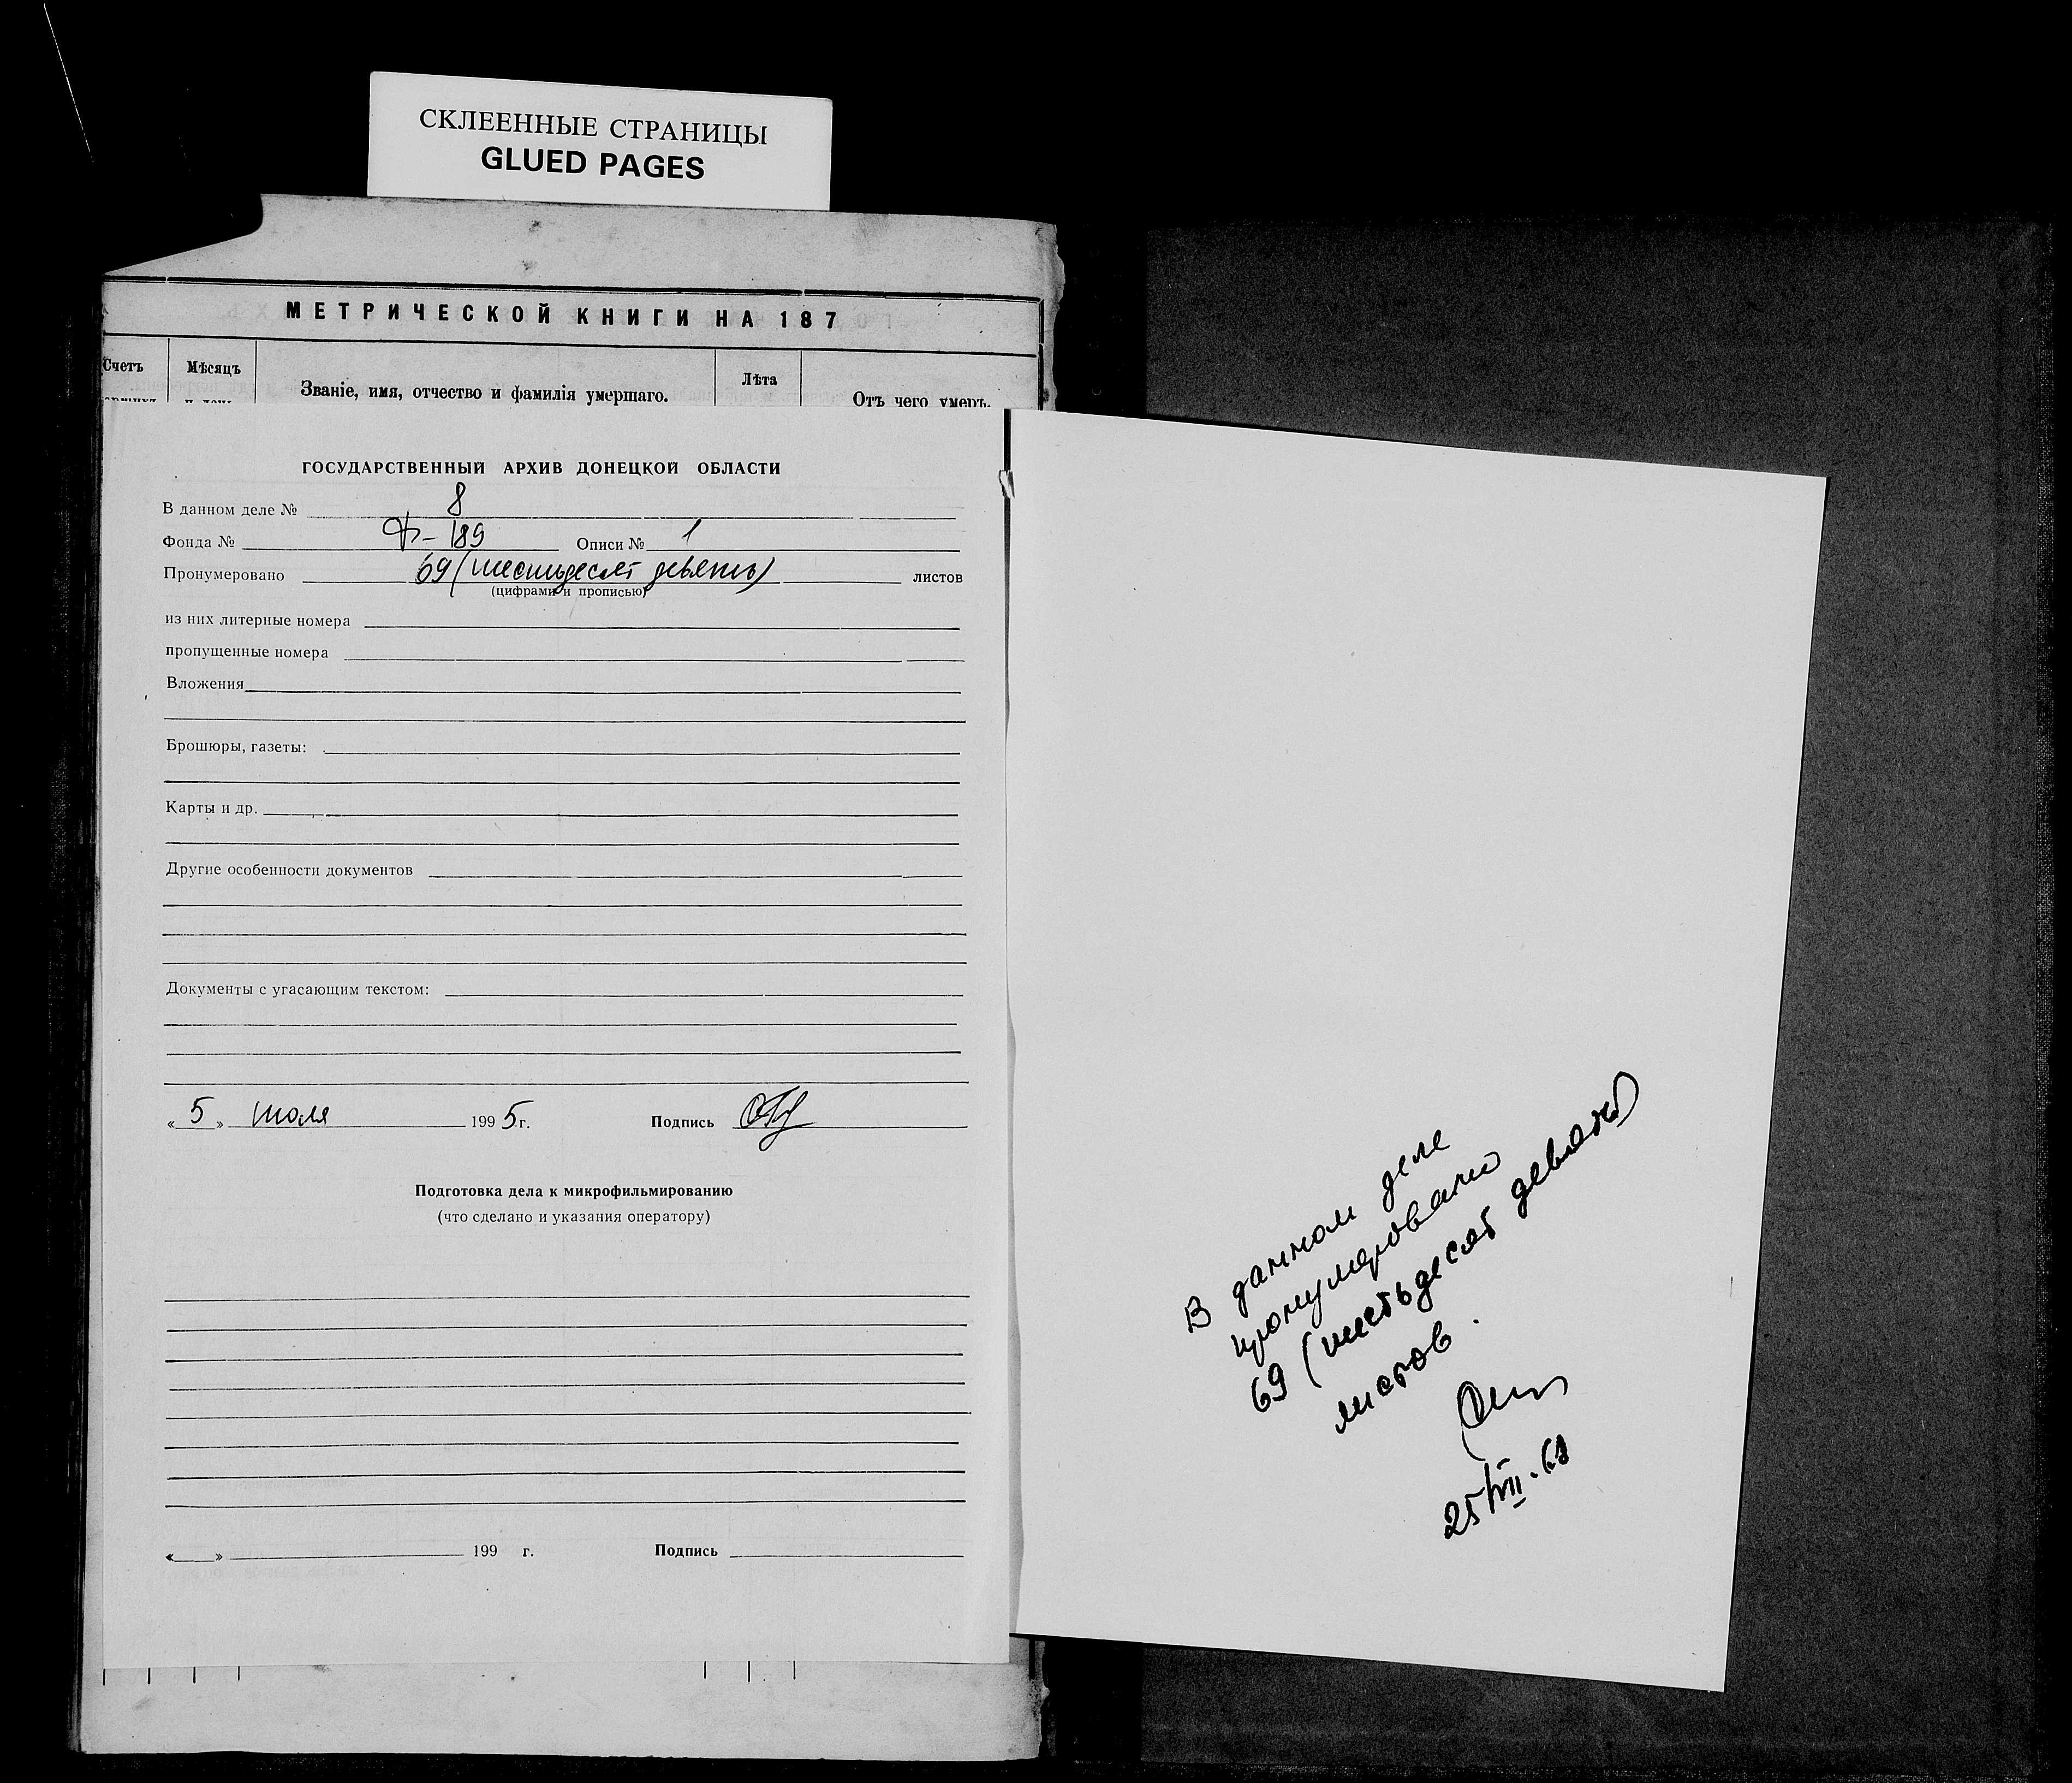 СКЛЕЕННЫЕ СТРАНИЦЫ
GLUED PAGES
МЕТРИЧЕСКОЙ КНИГИ НА 187
Счетъ
Мѣсяцъ
Званіе, имя, отчество и фамилія умершаго.
Лѣта
Отъ чего умеръ.
ГОСУДАРСТВЕННЫЙ АРХИВ ДОНЕЦКОЙ ОБЛАСТИ
В данном деле № 8
Фонда № Ф-189 Описи № 1
Пронумеровано 69 (шестьдесят девять) листов
(цифрами и прописью)
из них литерные номера
пропущенные номера
Вложения
Брошюры, газеты:
Карты и др.
Другие особенности документов
Документы с угасающим текстом:
«5» июля 1995 г. Подпись
Подготовка дела к микрофильмированию
(что сделано и указания оператору)
« » 199 г. Подпись
В данном деле
пронумеровано
69 (шестьдесят девять)
листов.